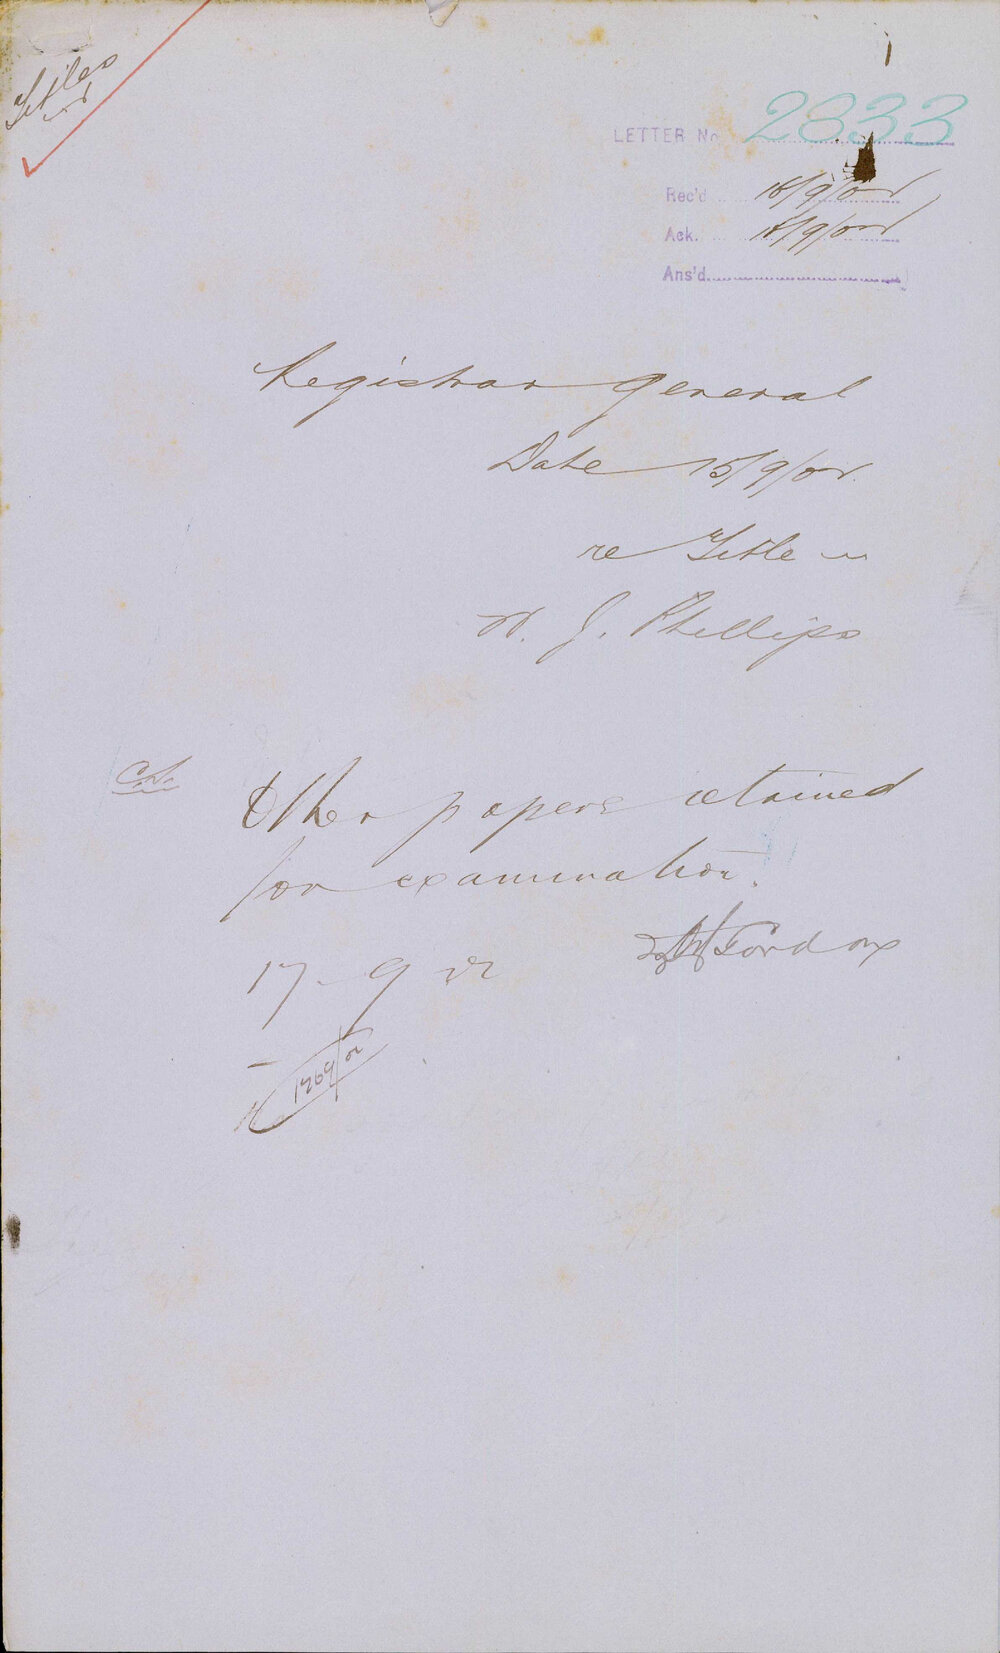 Titles
LETTER No 2833
Rec'd 18/9/02
Ack. 18/9/02
Ans'd
Registrar General
Date 15/9/02
re Title
W. J. Phillips
Other papers retained
for examination.
17. 9 02
1769/02